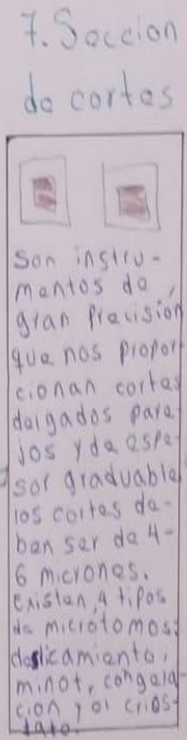 7. Seccion
de cortes
Son instru-
mentos de
gran Precisión
que nos propor
cionan cortes
delgados pare
jos y de espe
sor graduable
los cortes de-
ben ser de 4-
6 micrones.
Existen, 4 tipos
de microtomos:
deslicamiento,
minot, congela
cion y el crios-
tato.